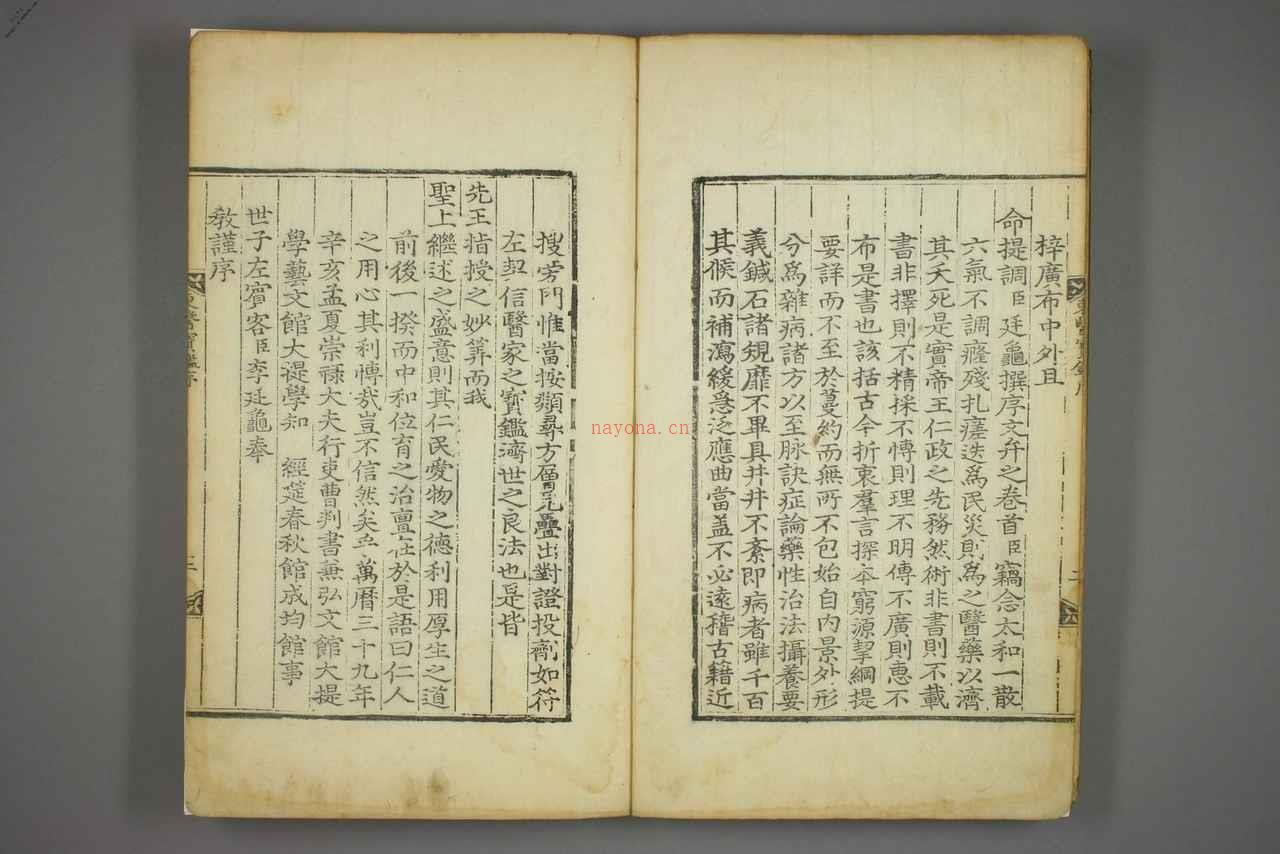 梓廣布中外且
命提調臣廷龜撰序文弁之卷首臣竊念太和一散
六氣不調癃殘扎瘥迭爲民災則爲之醫藥以濟
其夭死是實帝王仁政之先務然術非書則不載
書非擇則不精採不博則理不明傳不廣則惠不
布是書也該括古今折衷羣言探本窮源挈綱提
要詳而不至於蔓約而無所不包始自內景外形
分爲雜病諸方以至脉訣症論藥性治法攝養要
義鍼石諸規靡不畢具井井不紊即病者雖千百
其候而補瀉緩急泛應曲當盖不必遠稽古籍近
搜旁門惟當按類尋方層見疊出對證投劑如符
左契信醫家之寶鑑濟世之良法也是皆
先王指授之妙筭而我
聖上繼述之盛意則其仁民愛物之德利用厚生之道
前後一揆而中和位育之治亶在於是語曰仁人
之用心其利博哉豈不信然矣乎萬曆三十九年
辛亥孟夏崇祿大夫行吏曹判書兼弘文館大提
學藝文館大提學知 經筵春秋館成均館事
世子左賓客臣李廷龜奉
敎謹序
東醫寶鑑序
二
nayona.cn